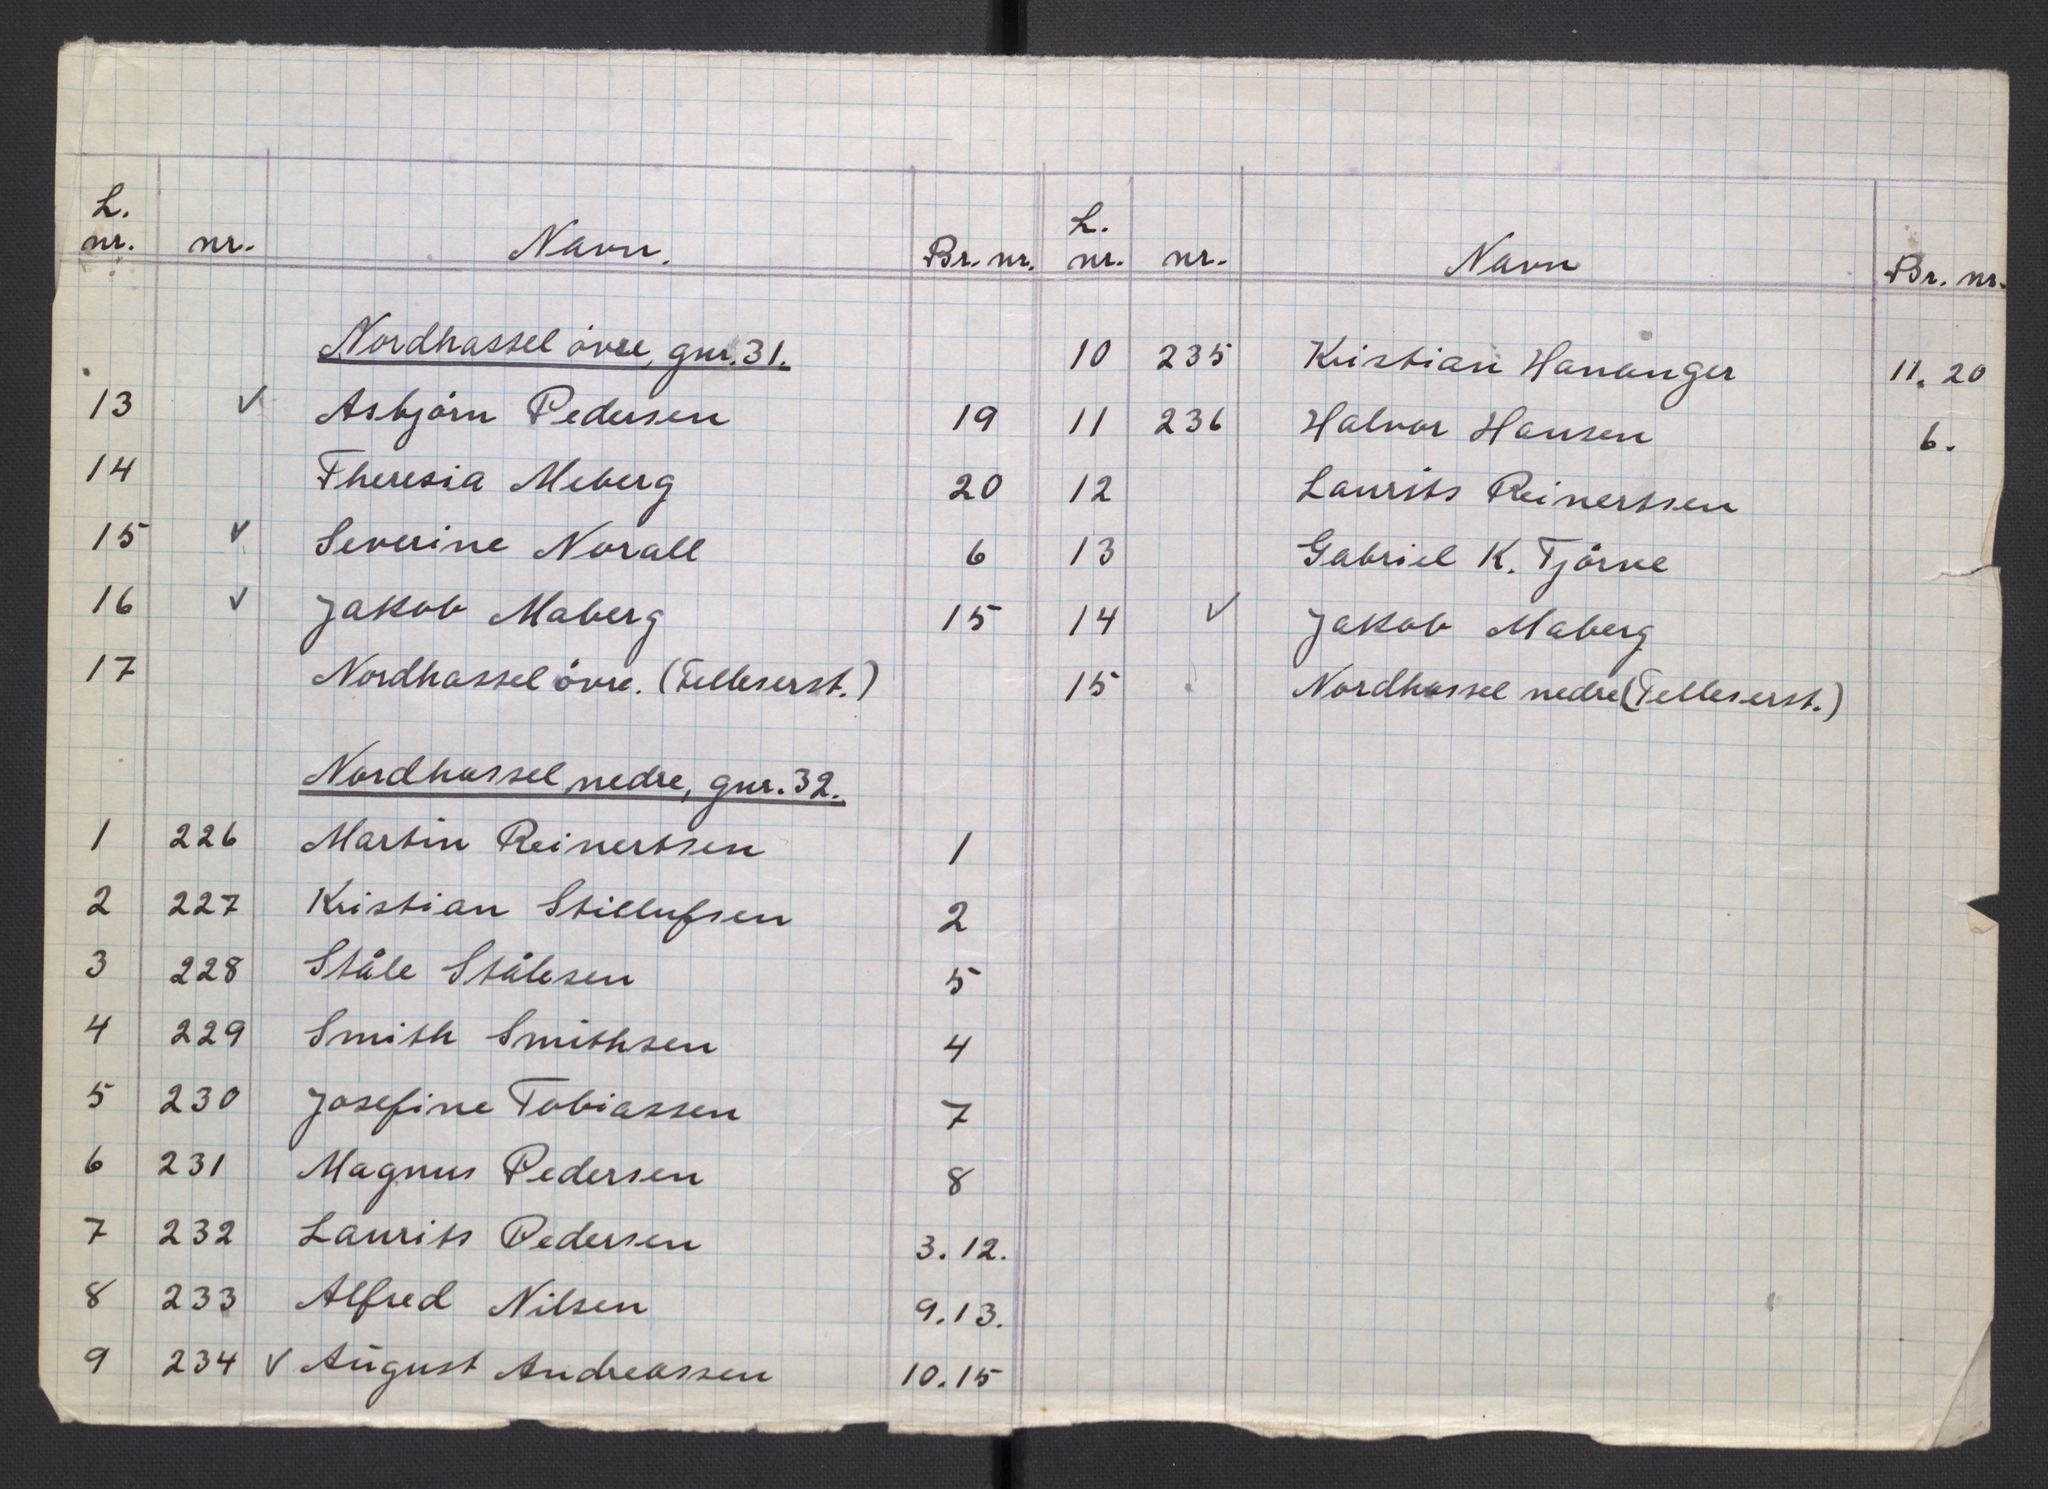 L. nr. nr. Navn. Br. nr.
Nordhassel övre, gnr. 31.
13 ✓ Asbjörn Pedersen 19
14 Theresia Meberg 20
15 ✓ Severine Norall 6
16 ✓ Jakob Maberg 15
17 Nordhassel övre. (Felleserst.)
Nordhassel nedre, gnr. 32.
1 226 Martin Reinertsen 1
2 227 Kristian Stillufsen 2
3 228 Ståle Stålesen 5
4 229 Smith Smithsen 4
5 230 Josefine Tobiassen 7
6 231 Magnus Pedersen 8
7 232 Laurits Pedersen 3. 12.
8 233 Alfred Nilsen 9. 13.
9 234 ✓ August Andreassen 10. 15
L. nr. nr. Navn Br. nr.
10 235 Kristian Hananger 11. 20
11 236 Halvor Hansen 6.
12 Laurits Reinertsen
13 Gabriel K. Tjörve
14 ✓ Jakob Maberg
15 Nordhassel nedre (Felleserst.)